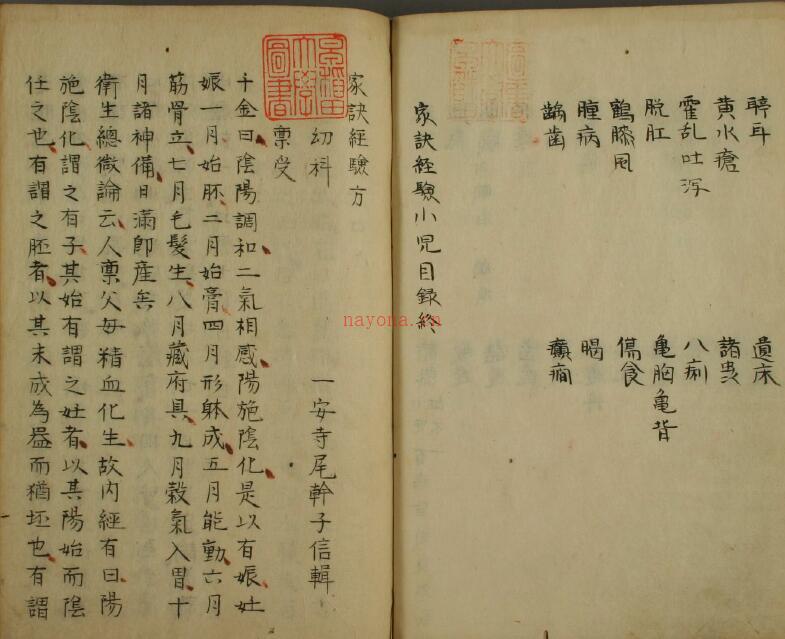 聤耳 遺床
黄水瘡 諸虫
霍乱吐泻 八痢
脱肛 亀胸亀背
鶴膝风 傷食
腫病 喝
齲歯 癲癇
家訣経驗小児目録終
家訣経驗方
幼科 一安寺尾幹子信輯
稟受
千金曰陰陽調和二氣相感陽施陰化是以有娠妊
娠一月始胚二月始膏四月形躰成五月能動六月
筋骨立七月毛髮生八月藏府具九月穀氣入胃十
月諸神備日滿即產矣
衛生總微論云人稟父母精血化生故内經有曰陽
施陰化謂之有子其始有謂之妊者以其陽始而陰
任之也有謂之胚者以其未成為器而猶坯也有謂
nayona.cn